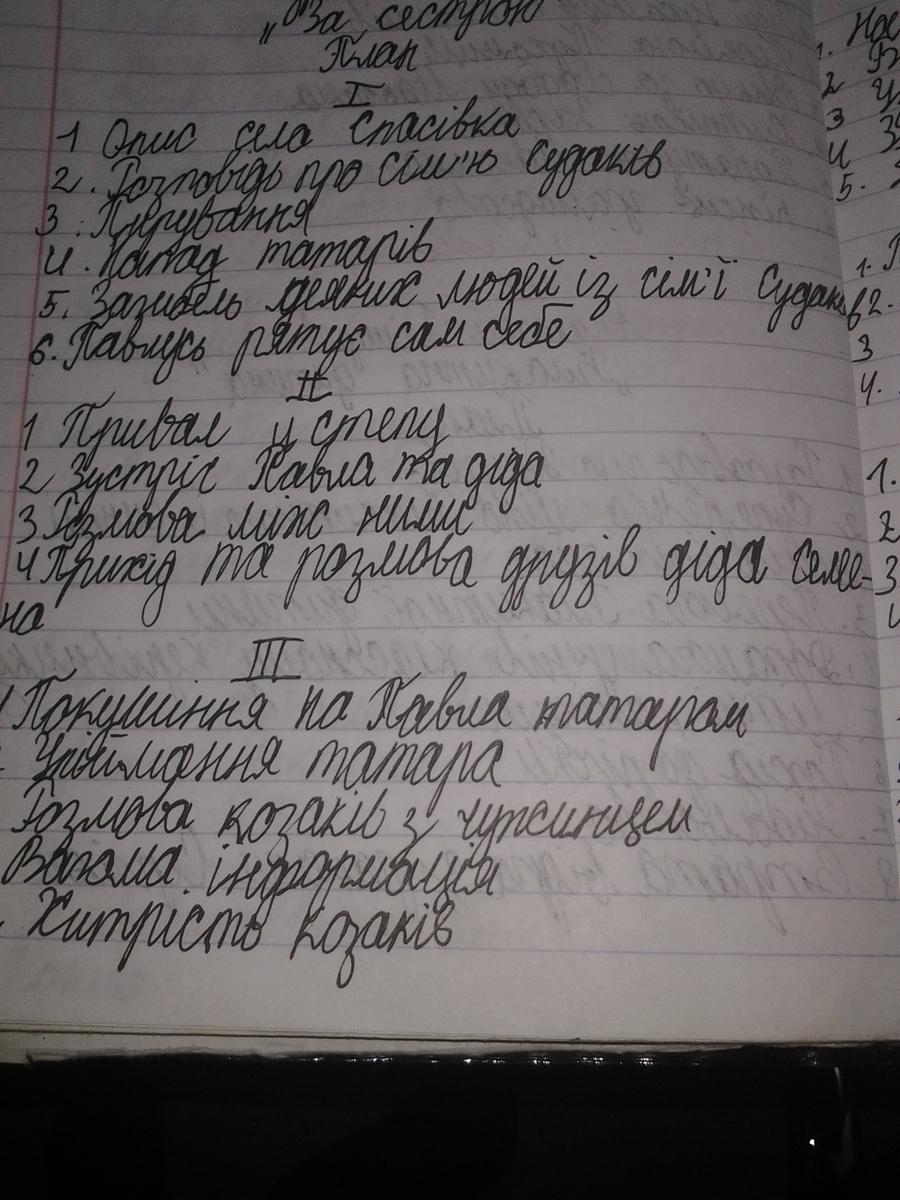 „За сестрою"
План
I
1 Опис села Спасівка
2. Розповідь про сім'ю Судаків
3. Пирування
4. Напад татарів
5. Загибель деяких людей із сім'ї Судаків
6. Павлусь рятує сам себе
II
1 Привал у степу
2 Зустріч Павла та діда
3 Розмова між ними
4 Прихід та розмова друзів діда Семе-
на
III
Покушіння на Павла татарам
Упіймання татара
Розмова козаків з чужинцем
Вагома інформація
Хитрість козаків
1.
2
3
4
5.
1.
2.
3
4.
1.
2
3